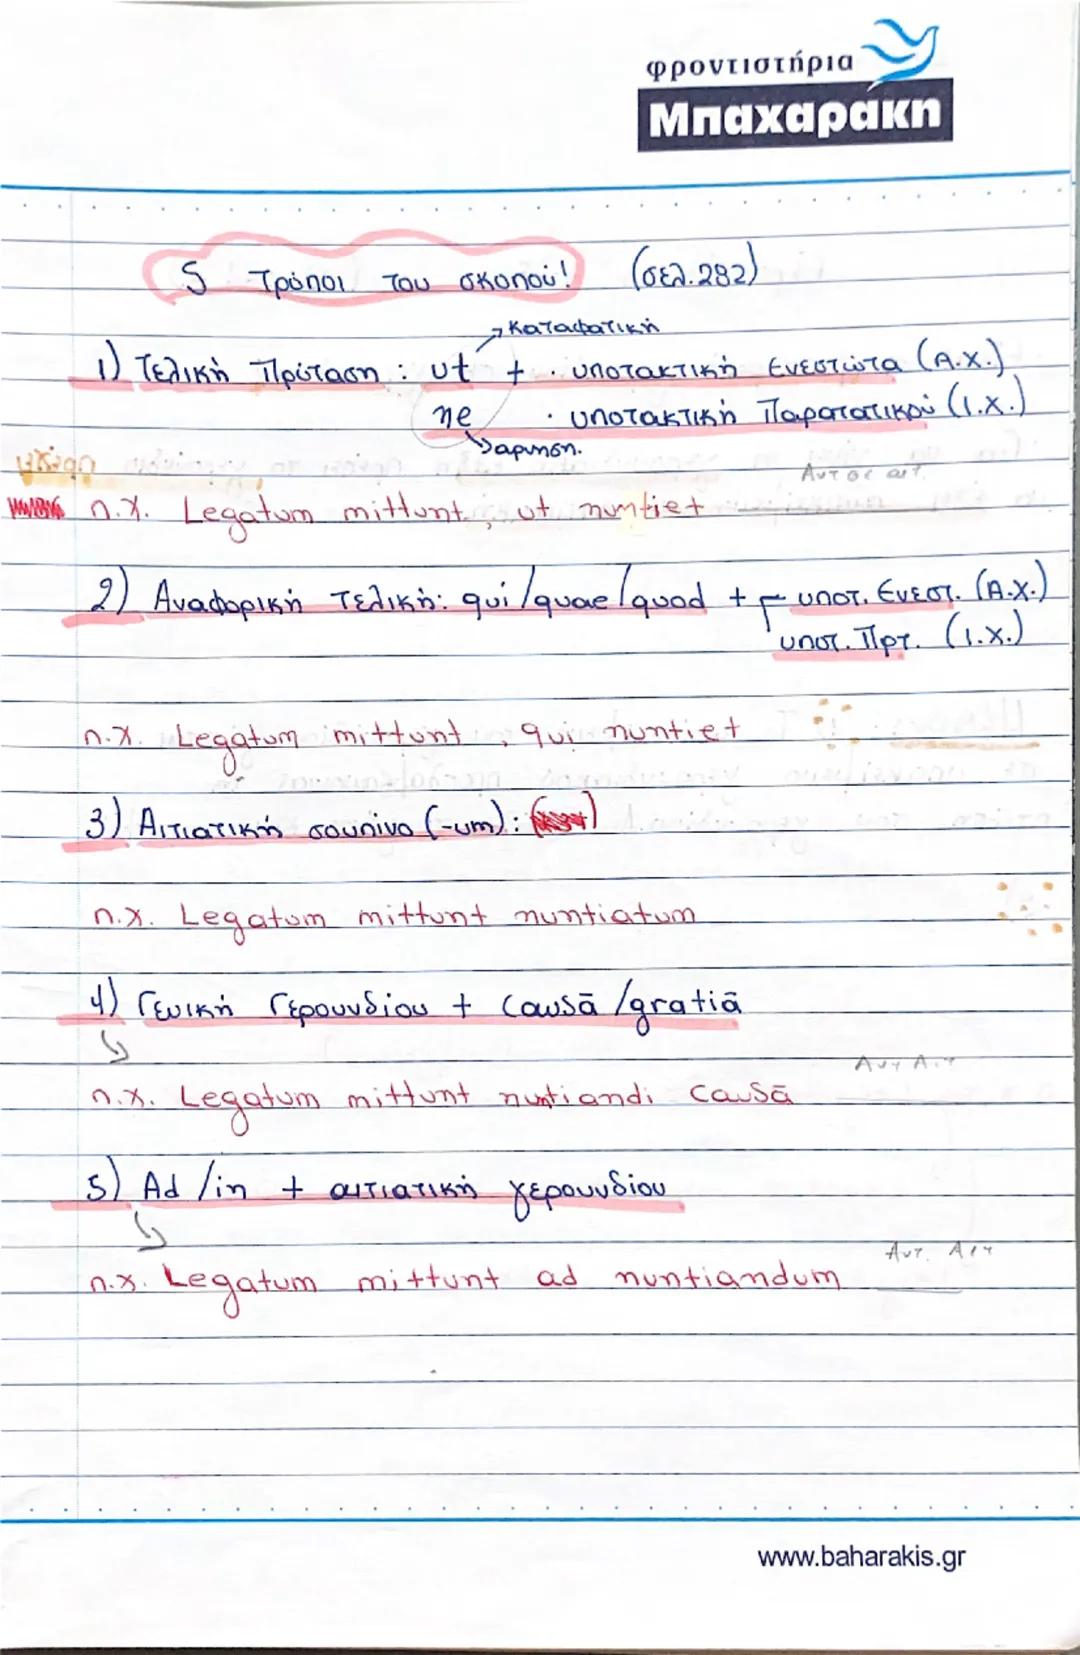 φροντιστήρια
Μπαχαράκη
5 Τρόποι του σκοπού! (σελ.282)
καταφατική
1) Τελική Πρόταση : ut + · υποτακτική Ενεστώτα (Α.Χ.)
ne · υποτακτική Παρατατικού (Ι.Χ.)
άρνηση.
π.χ. Legatum mittunt, ut nuntiet
2) Αναφορική Τελική: qui/quae/quod + υποτ. Ενεστ. (Α.Χ.)
υποτ. Πρτ. (Ι.Χ.)
π.χ. Legatum mittunt, qui nuntiet
3) Αιτιατική σουπίνο (-um):
π.χ. Legatum mittunt nuntiatum
4) Γενική Γερουνδίου + causā/gratiā
π.χ. Legatum mittunt nuntiandi causā
5) Ad/in + αιτιατική γερουνδίου
Αντ. Αιτ
π.χ. Legatum mittunt ad nuntiandum
www.baharakis.gr